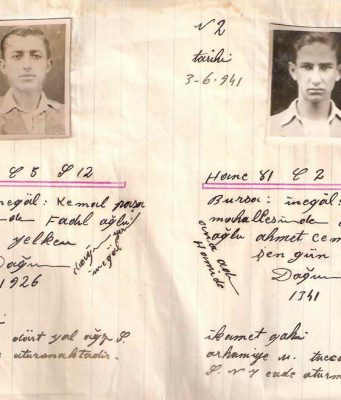 N 2
tarihi
3-6-941
C 5 S 12
inegöl: Kemal paşa
de Fadıl oğlu
yelken
Doğum
1926
dört yol ağzı S.
oturmaktadır.
Hane 81 C 2
Bursa: inegöl:
mahallesinde
oğlu ahmet cem
şen gün
Doğum
1341
ana adı
Hamide
ikamet gahı
orhaniye m.
S. N 7 evde oturm